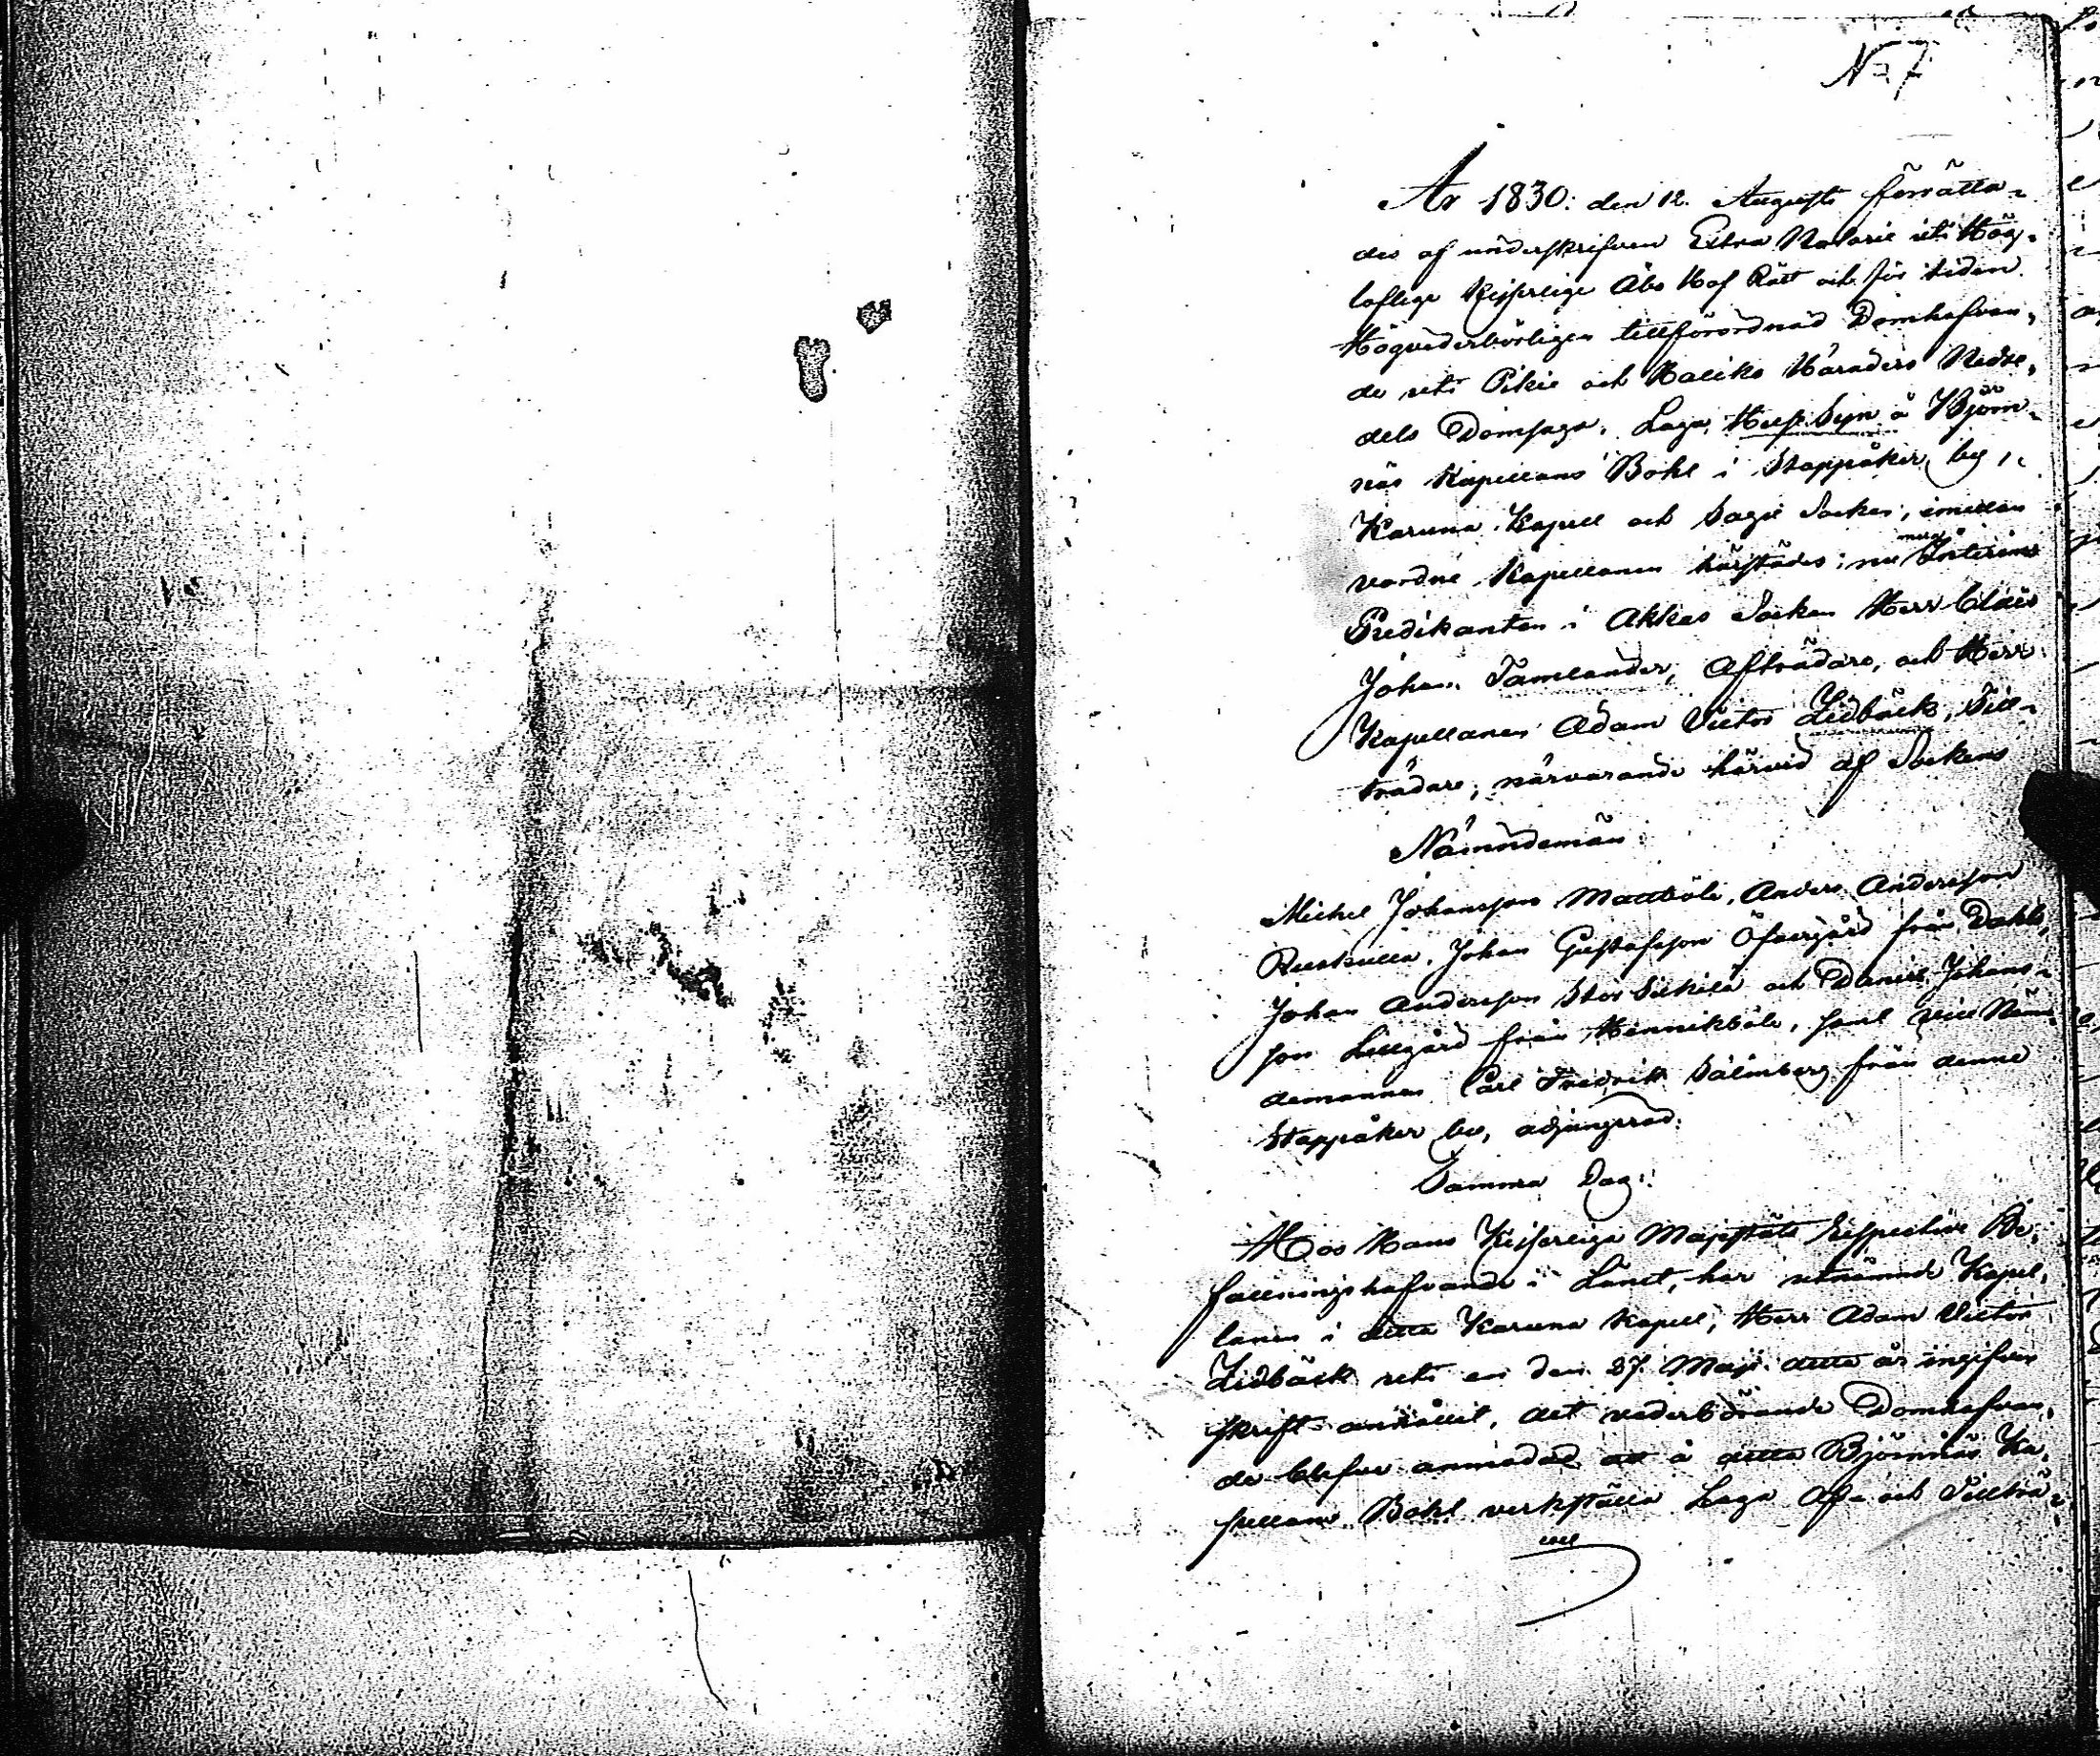 N 7
År 1830. den 12. Augusti förrätta-
des af underskrifven Extra Notarie uti Hög-
loflige Kejserlige Åbo Hof Rätt och för tiden
Högvederbörligen tillförordnad Domhafvan-
de uti Pikie och Haliko Häraders Nedre-
dels Domsaga, Laga Huse Syn å Björn-
näs Kapellans Bohl i Stappåker by,
Karuna Kapell och Sagu Socken, emellan
vordne Kapellanen härstädes; nu mera Interims
Predikanten i Akkas Socken Herr Claës
Johan Tamelander, Afträdare, och Herr
Kapellanen Adam Victor Lidbäck, Till-
trädare, närvarande härvid af Sockens
Nämndemän
Michel Johansson Mattböle, Anders Andersson
Johan Gustafsson Öfvergård från Dahl,
Johan Andersson Stor och Daniel Johans-
son Lillgård från Hennikböle, samt vice Näm-
demannen Carl Fredrik Salmberg från denne
Stappåker by, adjungerad.
Samma Dag:
Hos Hans Kejserliga Majestäts Respective Be-
fallningshafvande i Länet, har utnämnde Kapel-
lanen i detta Karuna Kapell, Herr Adam Victor
Lidbäck uti en den 27 Maji detta år ingifven
skrift anhållit, det vederbörande Domhafvan-
de blefve anmodad att å detta Björnnäs Ka-
pellans Bohl verkställa Laga Af- och Tillträ-